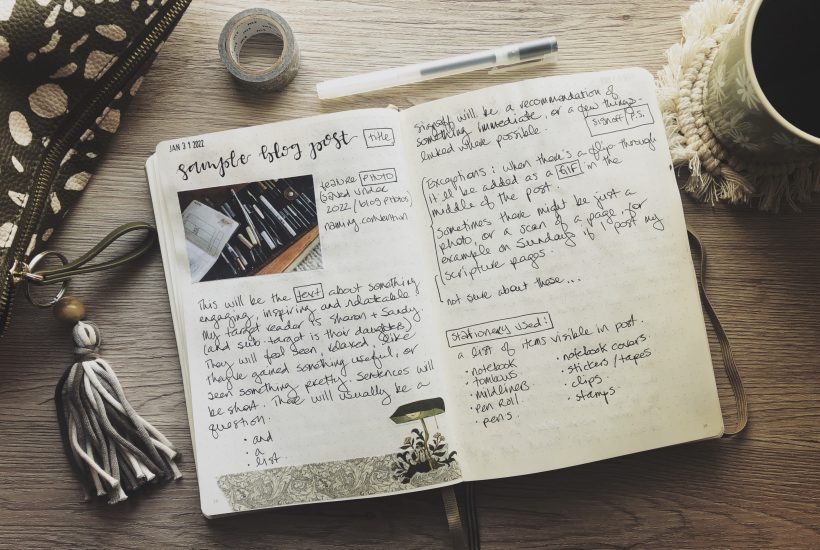 JAN 31 2022
sample blog post
title
feature PHOTO
(saved under
2022/blog photos)
naming convention
This will be the text about something
engaging, inspiring and relateable
My target reader is Sharon + Sandy
(and sub-target is their daughters)
They will feel seen, relaxed, like
they've gained something useful, or
seen something pretty. Sentences will
be short. There will usually be a
question.
• and
• a
• list
signoff will be a recommendation of
something immediate, or a few things.
linked where possible.
signoff/P.S.
Exceptions: when there's a flip-through
it'll be added as a GIF in the
middle of the post.
Sometimes there might be just a
photo, or a scan of a page, for
example on Sundays if I post my
scripture pages.
not sure about these...
Stationery used:
a list of items visible in post.
• notebook
• tombows
• mildliners
• pen roll
• pens
• notebook covers
• stickers/tapes
• clips
• stamps